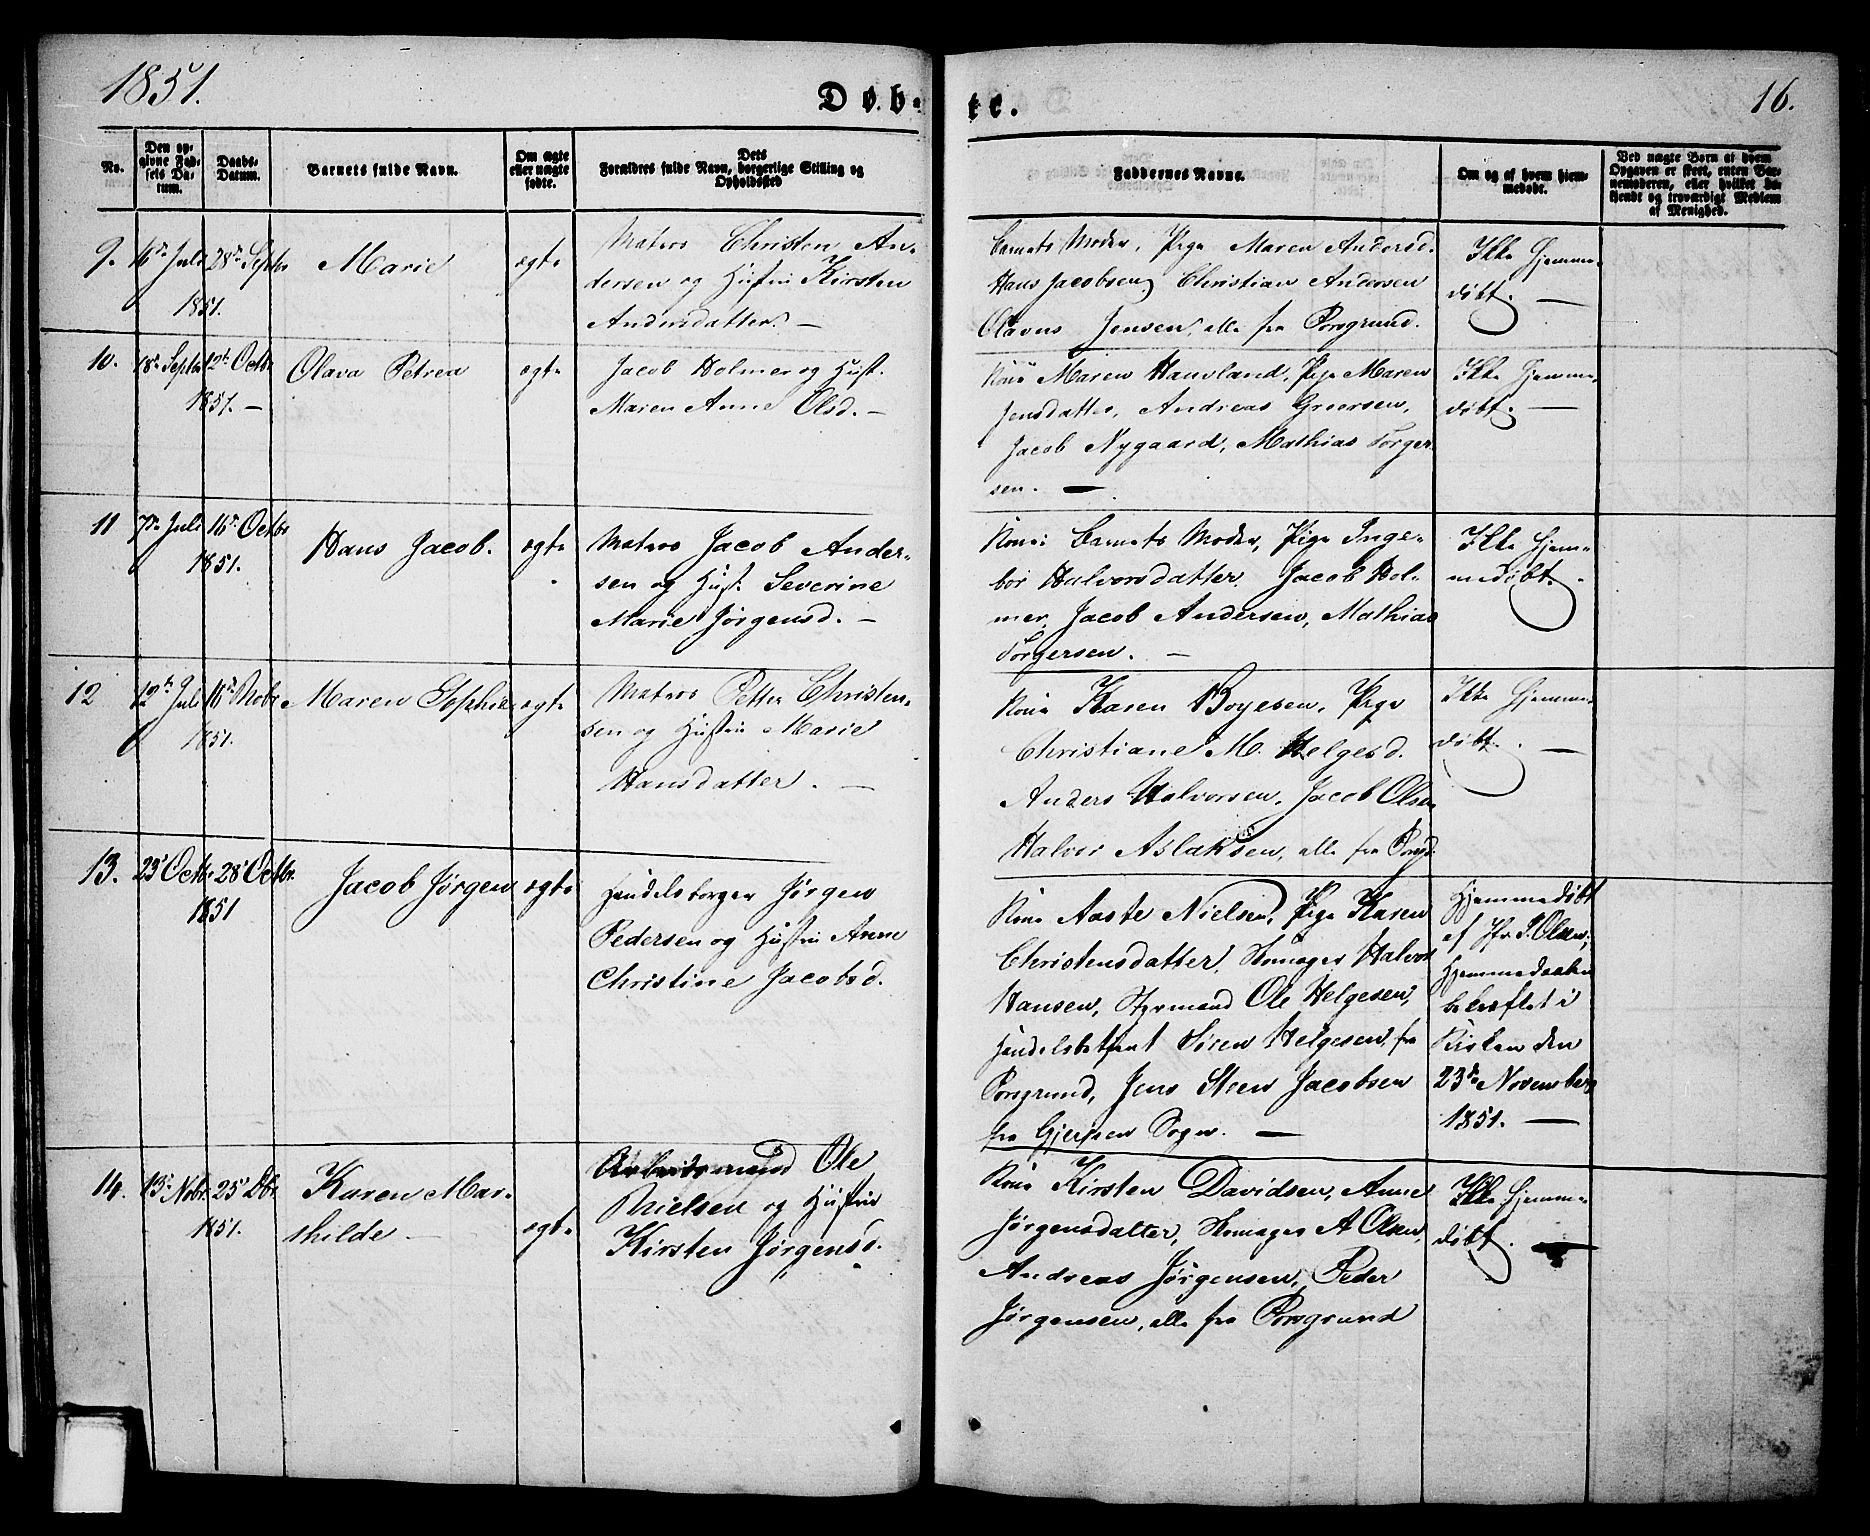 1851.
Døb-
te.
16.
No.
Den op-
givne Fød-
sels Da-
tum.
Daabs-
Datum.
Barnets fulde Navn.
Om ægte
eller uægte
fødte.
Dets
Forældres fulde Navn, borgerlige Stilling og
Opholdssted
Faddernes Navne.
Om og af hvem hjem-
medøbt.
Ved uægte Børn af hvem
Opgaven er skeet, enten Bar-
nemoderen, eller hvilket be-
kjendt og troværdigt Medlem
af Menighed.
9. 16de Juli 28de Septbr Marie ægte
1851.
Matros Christen An-
dersen og Hustru Kirsten
Andersdatter. —
Barnets Moder, Pige Maren Andersd.
Hans Jacobsen, Christian Andersen
Olavus Jensen, alle fra Porsgrund.
Ikke Hjemme-
døbt. —
10. 18de Septbr 12te Octbr Olava Petrea ægte
1851. —
Jacob Holmer og Hust.
Maren Anne Olsd. —
Kone Maren Hauvland, Pige Maren
Jensdatter, Andreas Greersen,
Jacob Nygaard, Mathias Torger-
sen. —
Ikke Hjemme-
døbt. —
11 7de Juli 16de Octbr Hans Jacob. ægte
1851.
Matros Jacob Ander-
sen og Hust. Severine
Marie Jørgensd. —
Kone: Barnets Moder, Pige Inge-
bor Halvorsdatter, Jacob Hol-
mer, Jacob Andersen, Mathias
Torgersen. —
Ikke Hjem-
medøbt. -
12 12te Juli 16de Nobr Maren Sophie ægte
1851.
Matros Petter Christen-
sen og Hustru Marie
Hansdatter. —
Kone Karen Boyesen, Pige
Christiane M. Helgesd.
Anders Halvorsen, Jacob Olsen,
Halvor Aslaksen, alle fra Porsgd.
Ikke Hjemme-
døbt. —
13. 23' Octbr 28' Octbr. Jacob Jørgen ægte
1851
Handelsborger Jørgen
Pedersen og Hustru Anne
Christine Jacobsd.
Kone Aaste Nielsen, Pige Karen
Christensdatter, Skomager Halvor
Hansen, Styrmand Ole Helgesen,
Handelsbetjent Søren Helgesen, fra
Porsgrund, Jens Steen Jacobsen
fra Gjerpen Sogn. —
Hjemmedøbt
af Hr P. Olsen;
Hjemmedaaben
bekræftet i
Kirken den
23de November
1851. —
14. 13' Nobr. 25' Dbr. Karen Mar- ægte
thilde — 1851.
Arbeidsmand Ole
Nielsen og Hustru
Kirsten Jørgensd.
Kone Kirsten Davidsen, Anne
Jørgensdatter, Skomager A Olsen,
Andreas Jørgensen, Peder
Jørgensen, alle fra Porsgrund
Ikke Hjemme-
døbt. —